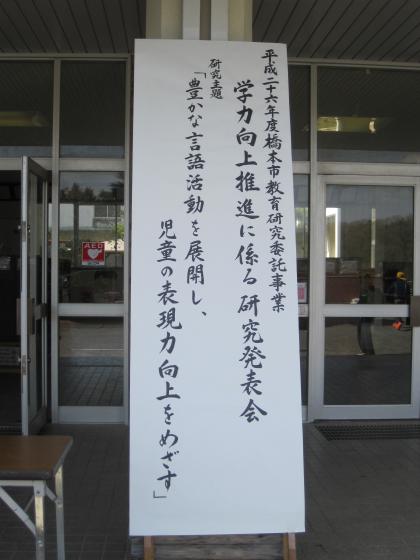 平成二十六年度橋本市教育研究委託事業
学力向上推進に係る研究発表会
研究主題
「豊かな言語活動を展開し、
児童の表現力向上をめざす」
AED